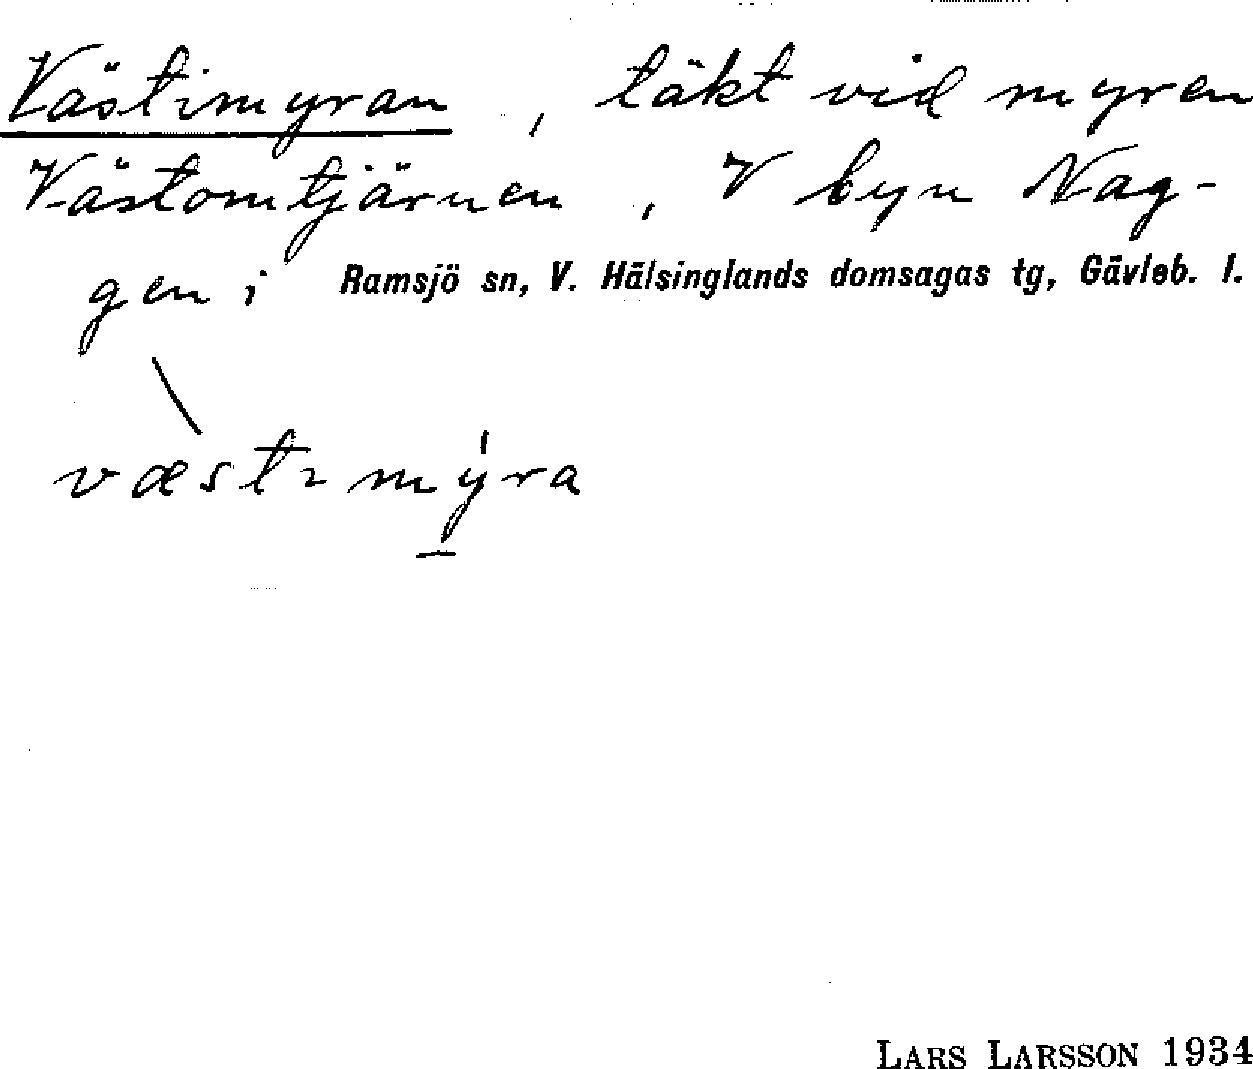 Västimyran, täkt vid myren
Västomtjärnen, V byn Nag-
gen i Ramsjö sn, V. Hälsinglands domsagas tg, Gävleb. l.
væstımýra
LARS LARSSON 1934